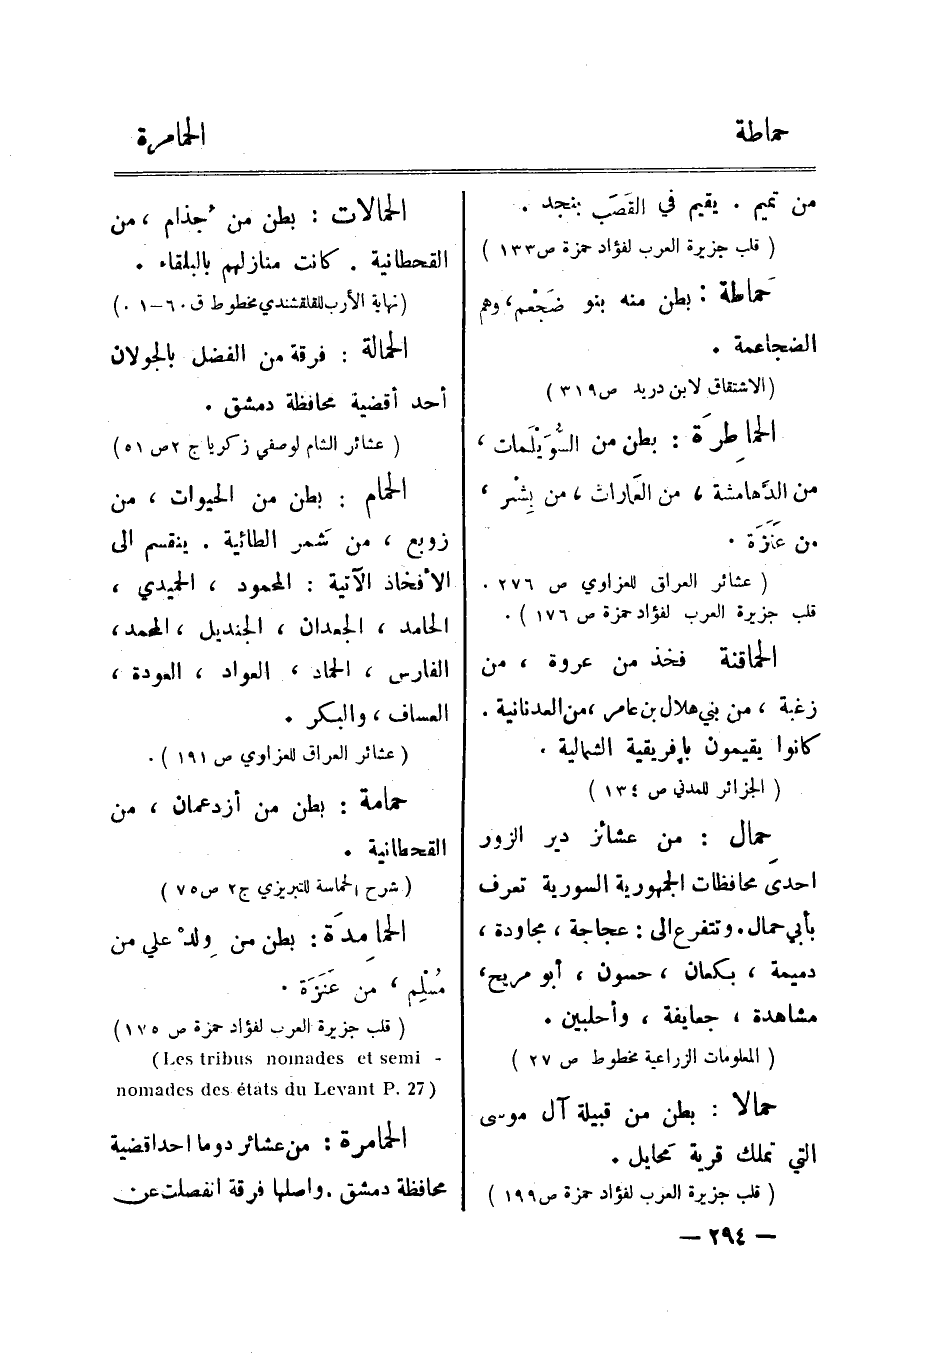 حماطة
الحامرة
من تميم . يقيم في القَصَب بنجد .
( قلب جزيرة العرب لفؤاد حمزة ص١٣٣ )
حَماطة : بطن منه بنو ضَجْعم، وهم
الضجاعمة .
(الاشتقاق لابن دريد ص٣١٩ )
الحمَاطِرَة : بطن من السُّوَيْلمات ،
من الدَّهامشة ، من العَمارات ، من بِشْر ،
من عَنَزَة .
( عشائر العراق للعزاوي ص ٢٧٦ .
قلب جزيرة العرب لفؤاد حمزة ص ١٧٦ ) .
الحماقنة فخذ من عروة ، من
زغبة ، من بني هلال بن عامر ، من العدنانية .
كانوا يقيمون بإفريقية الشمالية .
( الجزائر للمدني ص ١٣٤ )
حمال : من عشائر دير الزور
احدى محافظات الجمهورية السورية تعرف
بأبي حمال . وتتفرع الى : عجاجة ، مجاودة ،
دميمة ، بكعان ، حسون ، أبو مريح ،
مشاهدة ، جعايفة ، وأحلبين .
( المعلومات الزراعية مخطوط ص ٢٧ )
حمالا : بطن من قبيلة آل موسى
التي تملك قرية محايل .
( قلب جزيرة العرب لفؤاد حمزة ص١٩٩ )
الحمالات : بطن من جُذام ، من
القحطانية . كانت منازلهم بالبلقاء .
(نهاية الأرب للقلقشندي مخطوط ق ٦٠-١ .)
الحمالة : فرقة من الفضل بالجولان
أحد أقضية محافظة دمشق .
( عشائر الشام لوصفي زكريا ج ٢ص ٥١)
الحمام : بطن من الحيوات ، من
زوبع ، من شمر الطائية . ينقسم الى
الأفخاذ الآتية : المحمود ، الحميدي ،
الحامد ، الجعدان ، الجنديل ، المحمد،
الفارس ، الحماد ، العواد ، العودة ،
العساف ، والبكر .
( عشائر العراق للعزاوي ص ١٩١ ) .
حمامة : بطن من أزدعمان ، من
القحطانية .
( شرح الحماسة للتبريزي ج٢ ص٧٥ )
الحمَامِدَة : بطن من وِلْد علي من
مُسْلِم ، من عَنَزَة .
( قلب جزيرة العرب لفؤاد حمزة ص ١٧٥)
(Les tribus nomades et semi -
nomades des états du Levant P. 27)
الحمامرة : من عشائر دوما احد اقضية
محافظة دمشق . واصلها فرقة انفصلت عن
— ٢٩٤ —